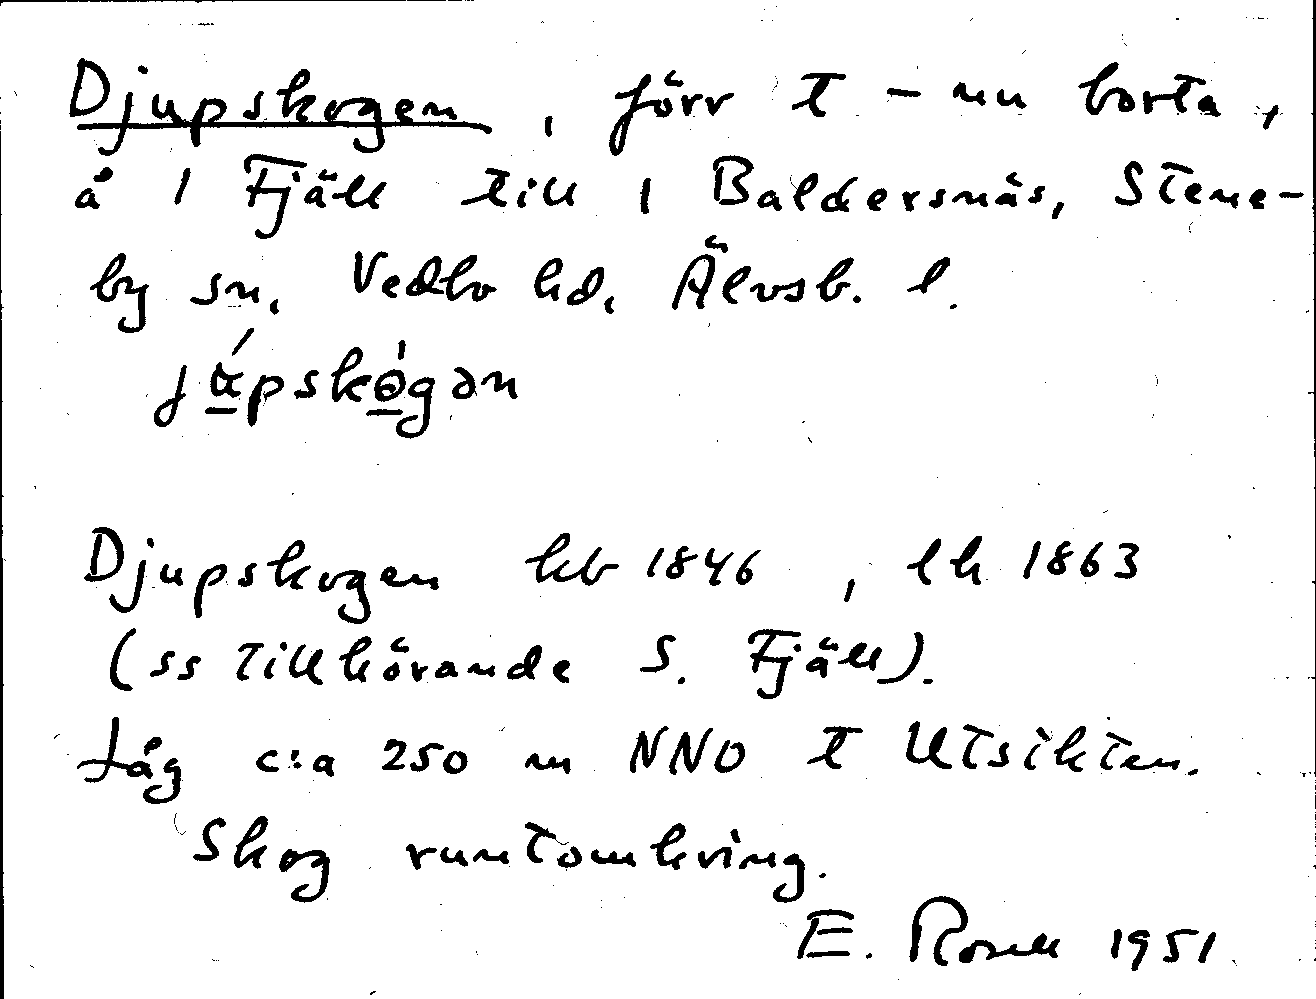 Djupskogen, förr t – nu borta,
å 1 Fjäll till 1 Baldersnäs, Stene-
by sn, Vedbo hd, Älvsb. l.
Djupskogen kb 1846, lh 1863
(ss tillhörande S. Fjäll).
Låg c:a 250 m NNO t Utsikten.
Skog runtomkring.
E. Rosell 1951